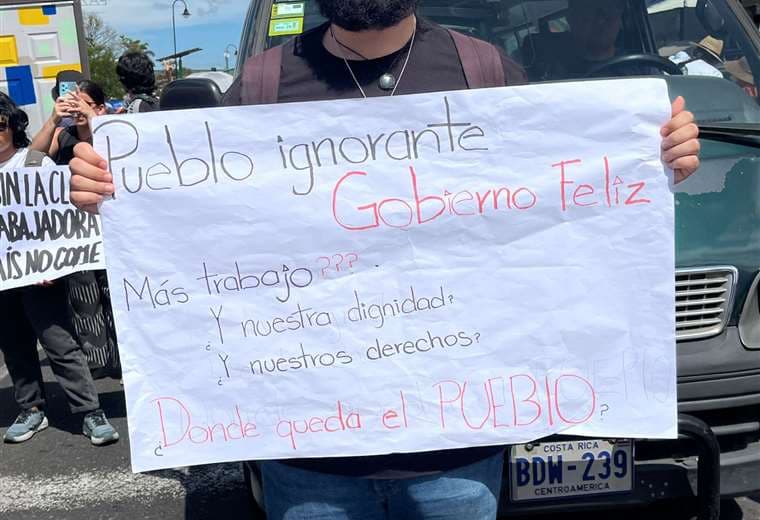 Pueblo ignorante
Gobierno Feliz
Más trabajo???.
¿Y nuestra dignidad?
¿Y nuestros derechos?
¿Donde queda el PUEBlO?
IN LA CL
ABAJADORA
ÍS NO COME
COSTA RICA
BDW-239
CENTROAMERICA